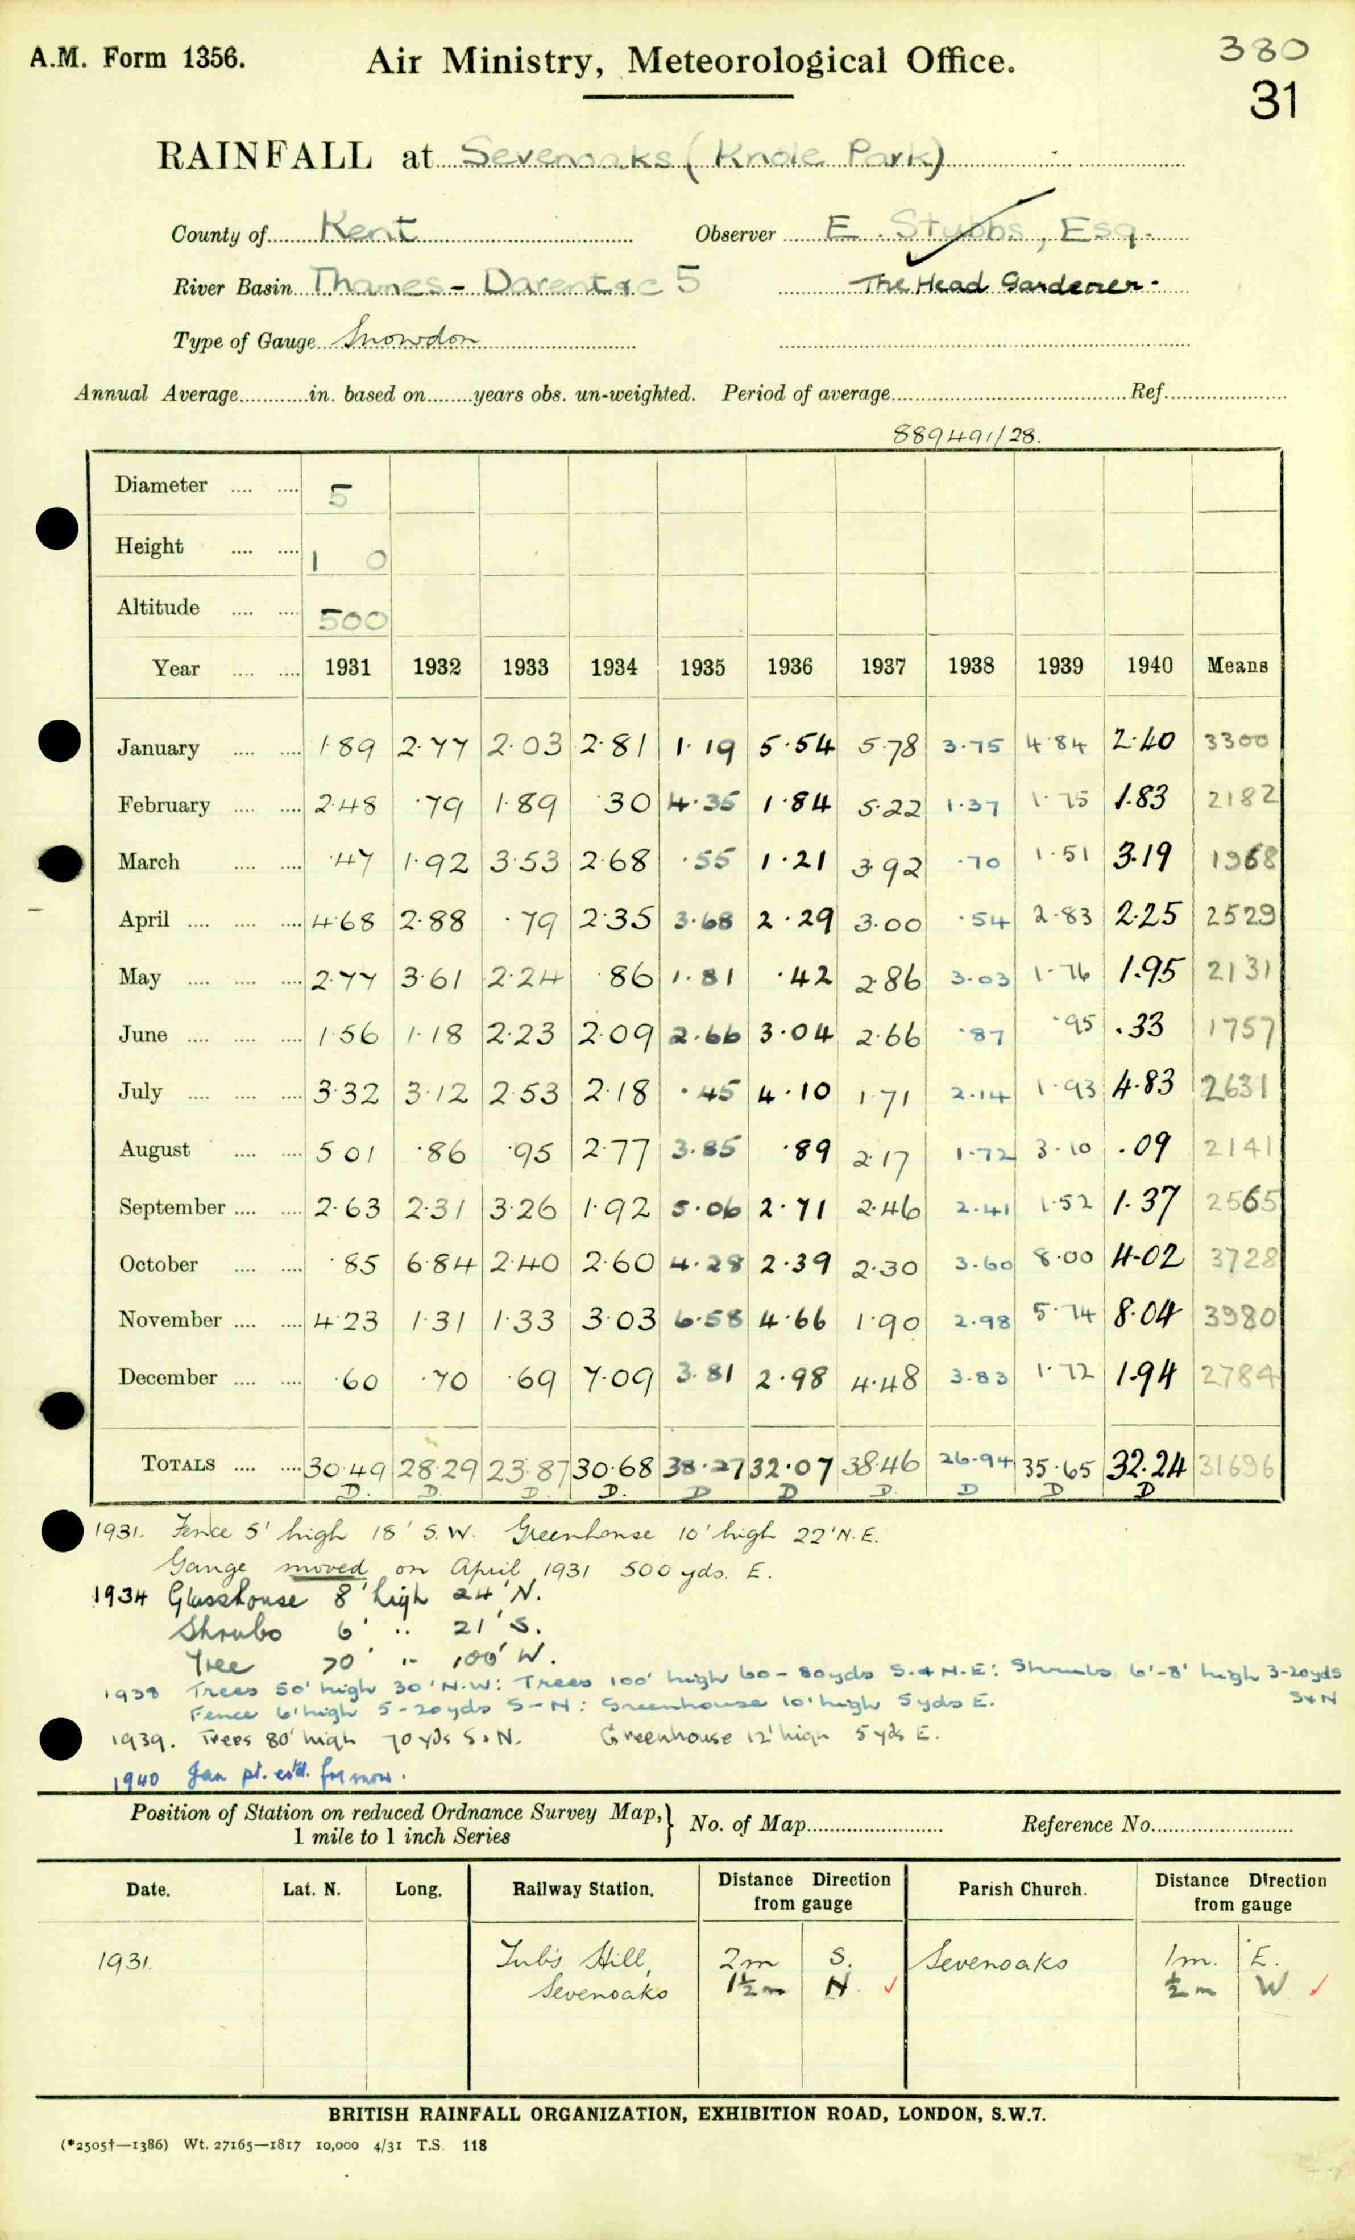 A.M. Form 1356.
Air Ministry, Meteorological Office.
380
31
RAINFALL at Sevenoaks (Knole Park)
County of Kent Observer E. Stubbs, Esq.
River Basin Thames - Darent &c 5 The Head Gardener.
Type of Gauge Snowdon
Annual Average............in. based on........years obs. un-weighted. Period of average............Ref............
889491/28.
Diameter .... .... 5
Height .... .... 1 0
Altitude .... .... 500
Year .... .... 1931 1932 1933 1934 1935 1936 1937 1938 1939 1940 Means
January .... .... 1·89 2·77 2·03 2·81 1·19 5·54 5·78 3·75 4·84 2·40 3300
February .... .... 2·48 ·79 1·89 ·30 4·35 1·84 5·22 1·37 1·75 1·83 2182
March .... .... ·47 1·92 3·53 2·68 ·55 1·21 3·92 ·70 1·51 3·19 1968
April .... .... .... 4·68 2·88 ·79 2·35 3·68 2·29 3·00 ·54 2·83 2·25 2529
May .... .... .... 2·77 3·61 2·24 ·86 1·81 ·42 2·86 3·03 1·76 1·95 2131
June .... .... .... 1·56 1·18 2·23 2·09 2·66 3·04 2·66 ·87 ·95 ·33 1757
July .... .... .... 3·32 3·12 2·53 2·18 ·45 4·10 1·71 2·14 1·93 4·83 2631
August .... .... 5 01 ·86 ·95 2·77 3·85 ·89 2·17 1·72 3·10 ·09 2141
September .... .... 2·63 2·31 3·26 1·92 5·06 2·71 2·46 2·41 1·52 1·37 2565
October .... .... ·85 6·84 2·40 2·60 4·28 2·39 2·30 3·60 8·00 4·02 3728
November .... .... 4·23 1·31 1·33 3·03 6·58 4·66 1·90 2·98 5·74 8·04 3980
December .... .... ·60 ·70 ·69 7·09 3·81 2·98 4·48 3·83 1·72 1·94 2784
TOTALS .... .... 30·49 28·29 23·87 30·68 38·27 32·07 38·46 26·94 35·65 32·24 31696
D. D. D. D. D D D. D D D
1931. Fence 5' high 18' S.W. Greenhouse 10' high 22' N.E.
Gauge moved on April 1931 500 yds. E.
1934 Glasshouse 8' high 24' N.
Shrubs 6' " 21' S.
Tree 70' " 100' W.
1938 Trees 50' high 30' N.W: Trees 100' high 60 - 80yds S. & N.E: Shrubs 6'-8' high 3-20yds
S & N
Fence 6' high 5-20yds S-N: Greenhouse 10' high 5yds E.
1939. Trees 80' high 70 yds S & N. Greenhouse 12' high 5 yds E.
1940 Jan pt. estd. for snow.
Position of Station on reduced Ordnance Survey Map, } No. of Map............ Reference No............
1 mile to 1 inch Series
Date. Lat. N. Long. Railway Station. Distance Direction from gauge Parish Church. Distance Direction from gauge
1931. Tub's Hill, 2m S. Sevenoaks 1m. E.
Sevenoaks 1½m N. ✓ ½m W ✓
BRITISH RAINFALL ORGANIZATION, EXHIBITION ROAD, LONDON, S.W.7.
(*2505†—1386) Wt. 27165—1817 10,000 4/31 T.S. 118